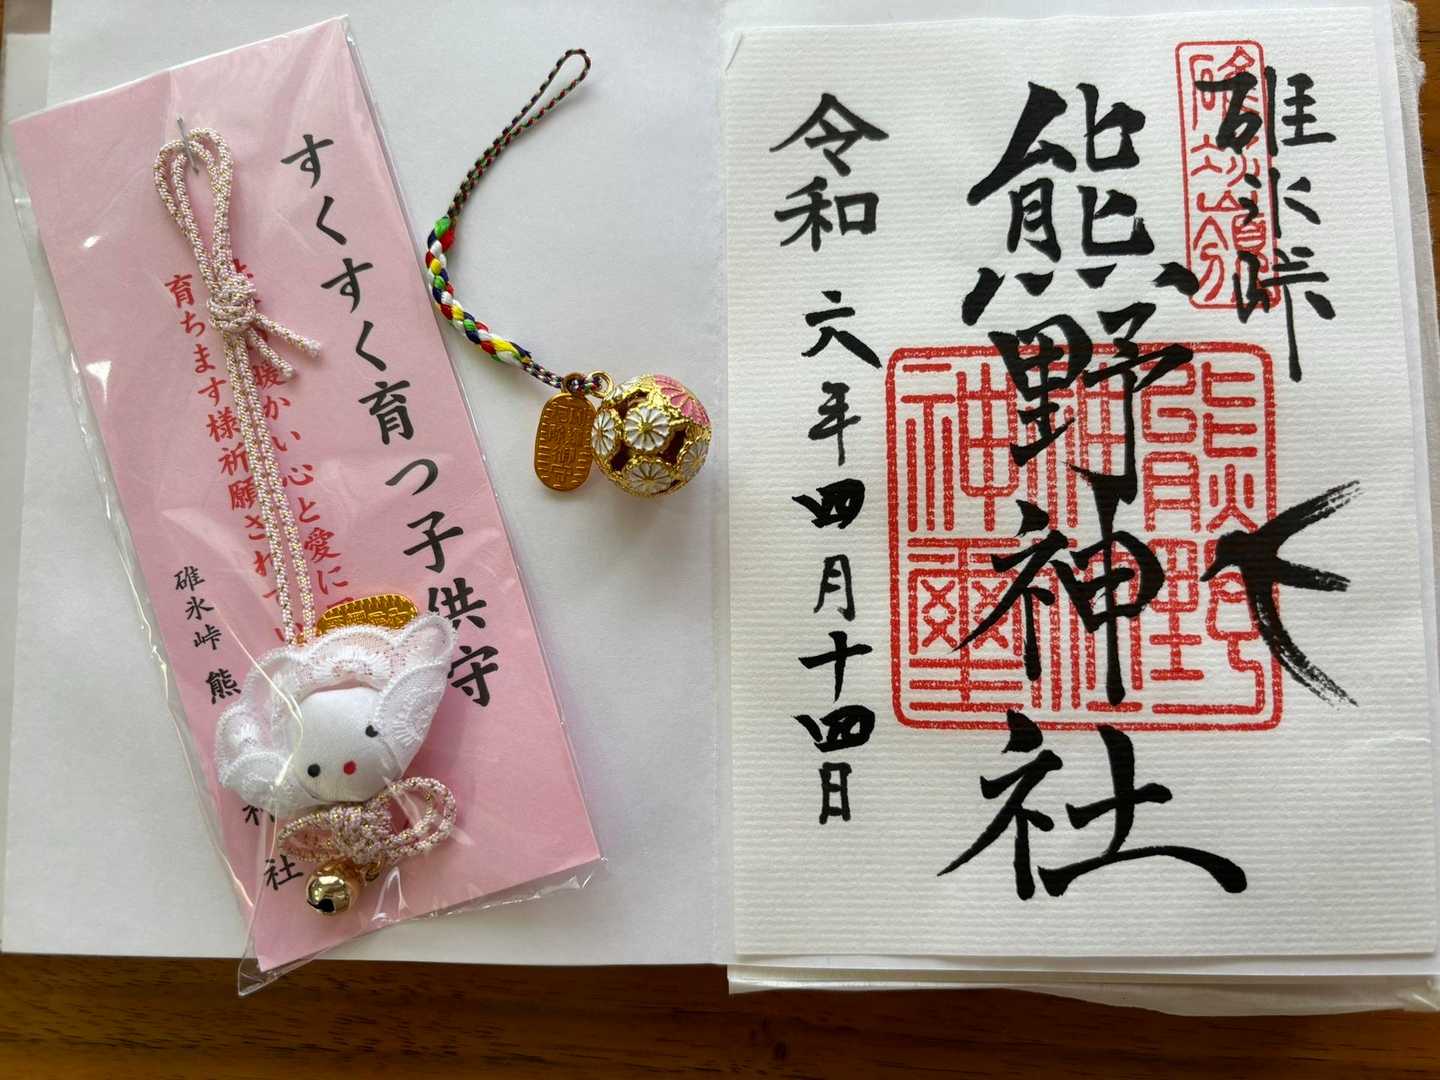 すくすく育つ子供守
暖かい心と愛に
育ちます様祈願されてい
碓氷峠 熊
社
碓氷峠
熊野神社
令和六年四月十四日